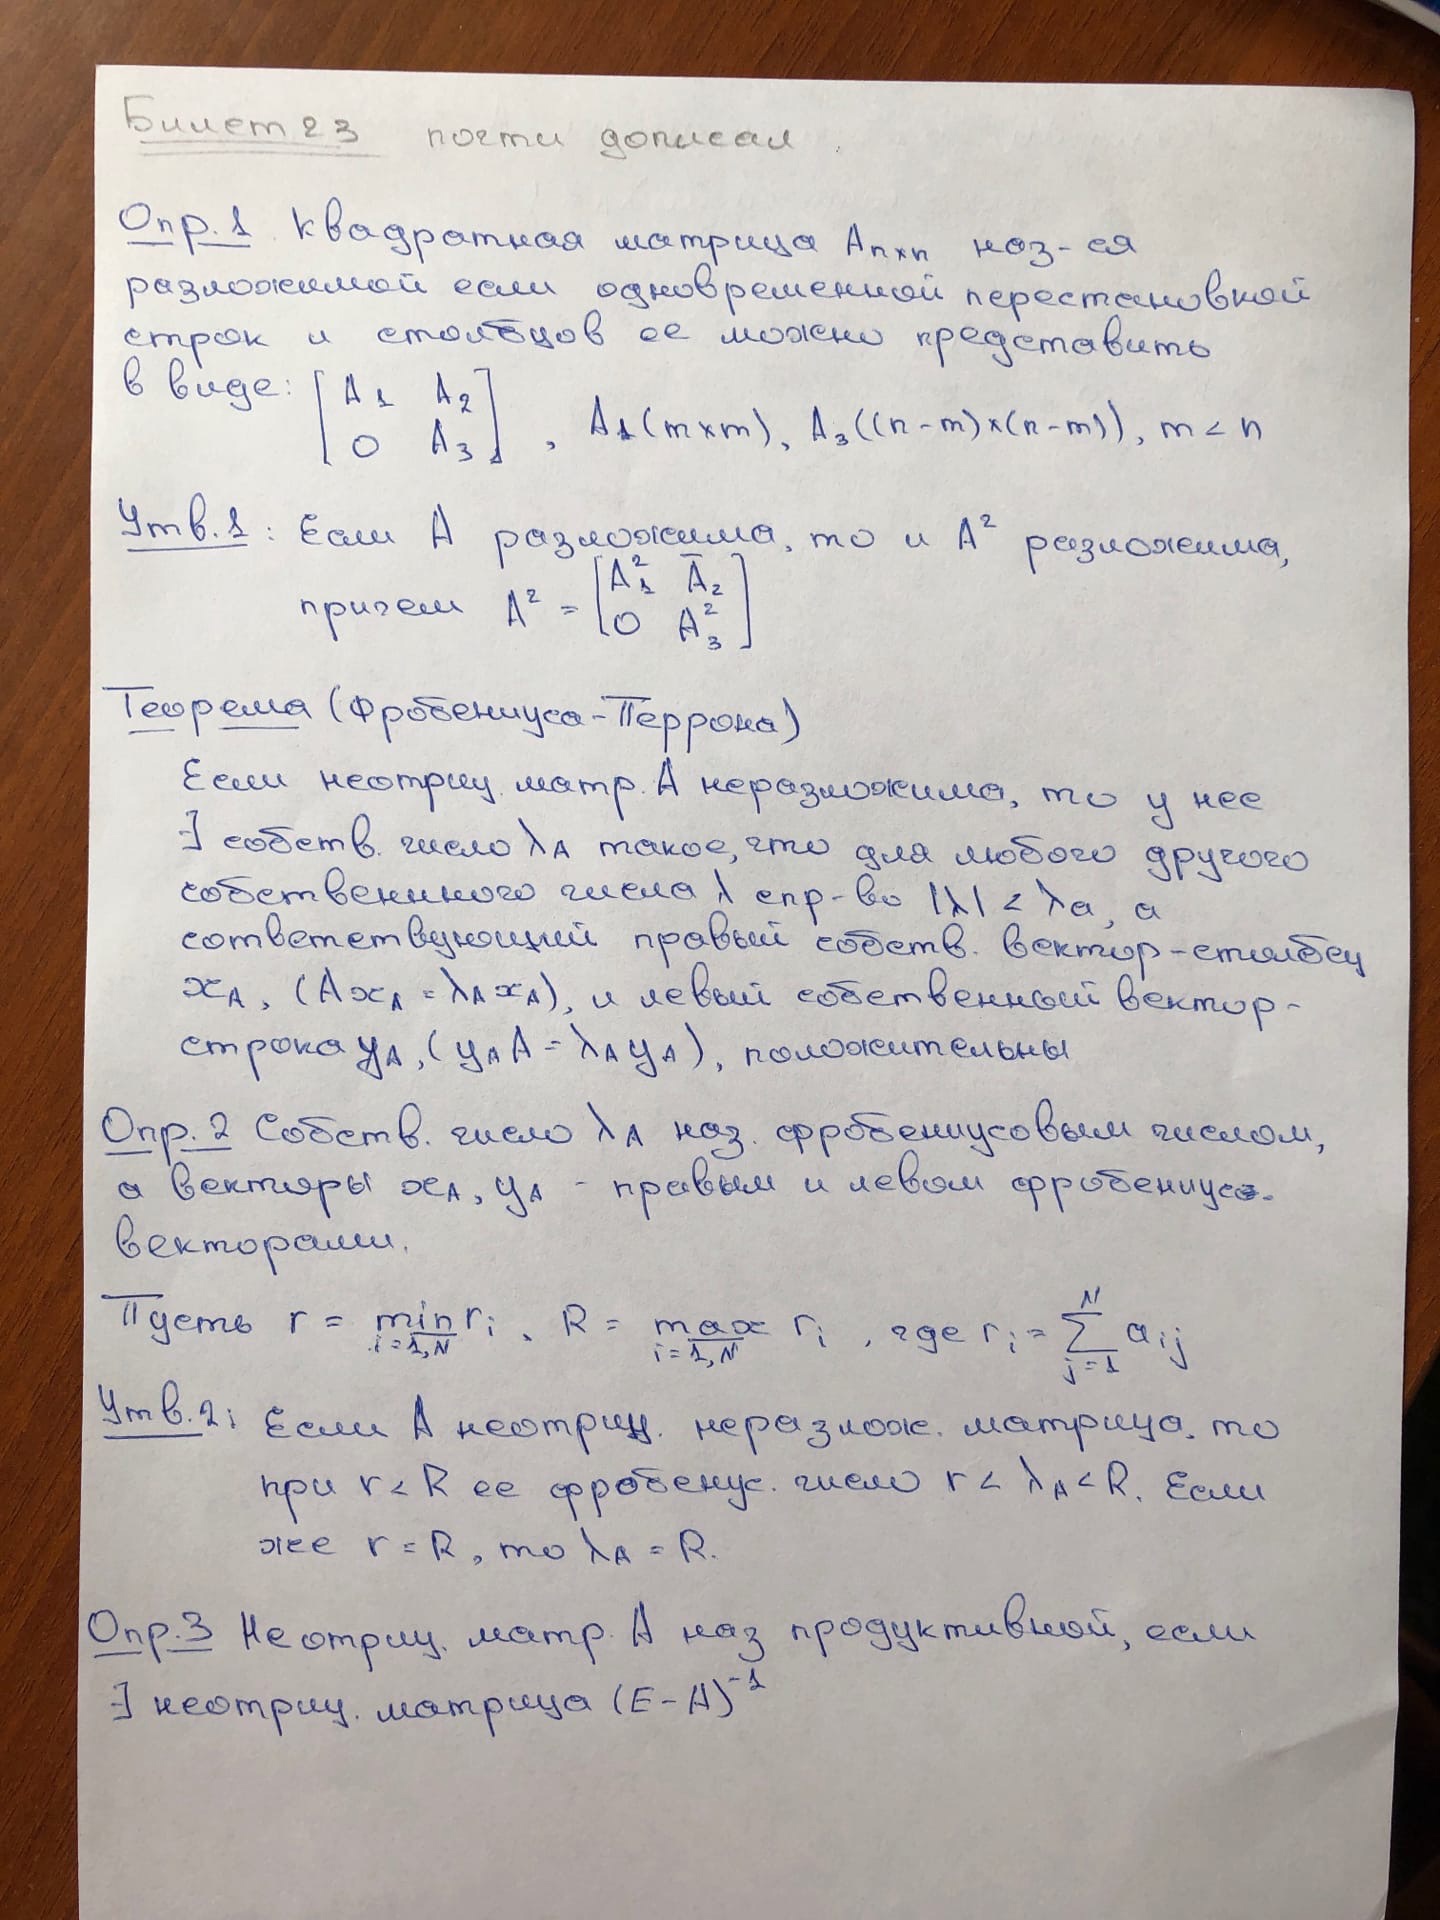 Билет 23 почти дописал.
Опр.1 Квадратная матрица Aₙₓₙ наз-ся
разложимой если одновременной перестановкой
строк и столбцов ее можно представить
в виде: [A₁ A₂; 0 A₃], A₁(m×m), A₃((n-m)×(n-m)), m < n
Утв.1: Если A разложима, то и A² разложима,
причем A² = [A₁² Ā₂; 0 A₃²]
Теорема (Фробениуса-Перрона)
Если неотриц. матр. A неразложима, то у нее
∃ собств. число λ_A такое, что для любого другого
собственнного числа λ спр-во |λ| < λa, а
сответствующий правый собств. вектор-столбец
x_A, (Ax_A = λ_A x_A), и левый собственный вектор-
строка y_A, (y_A A = λ_A y_A), положительны
Опр.2 Собств. число λ_A наз. фробениусовым числом,
а векторы x_A, y_A - правым и левом фробениус.
векторами.
Пусть r = min rᵢ, i=1,N, R = max rᵢ, i=1,N, где rᵢ = Σ_{j=1}^{N} aᵢⱼ
Утв.2: Если A неотриц. неразлож. матрица, то
при r < R ее фробенус. число r < λ_A < R. Если
же r = R, то λ_A = R.
Опр.3 Неотриц. матр. A наз продуктивной, если
∃ неотриц. матрица (E - A)⁻¹